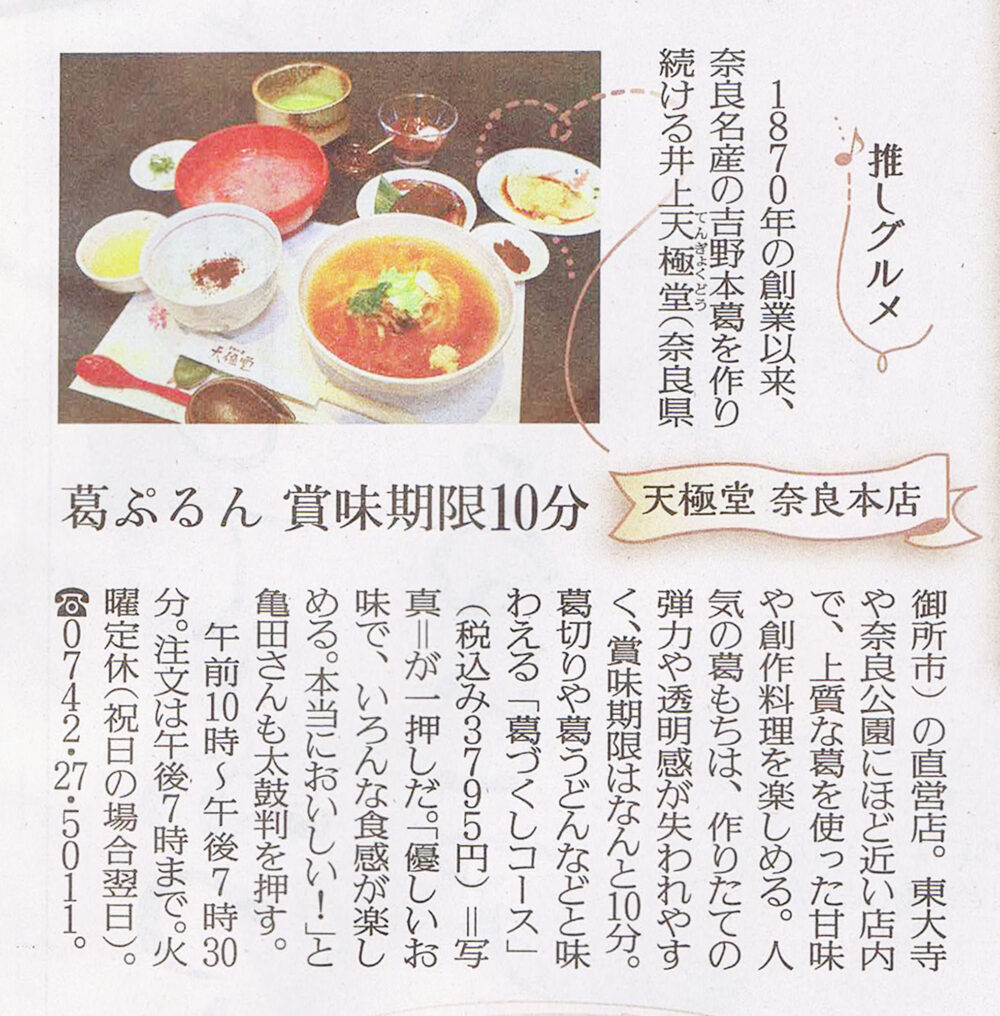 推しグルメ
1870年の創業以来、
奈良名産の吉野本葛を作り
続ける井上天極堂（奈良県
てんぎょくどう
天極堂
天極堂 奈良本店
葛ぷるん 賞味期限10分
御所市）の直営店。東大寺
や奈良公園にほど近い店内
で、上質な葛を使った甘味
や創作料理を楽しめる。人
気の葛もちは、作りたての
弾力や透明感が失われやす
く、賞味期限はなんと10分。
葛切りや葛うどんなどと味
わえる「葛づくしコース」
（税込み3795円）＝写
真＝が一押しだ。「優しいお
味で、いろんな食感が楽し
める。本当においしい！」と
亀田さんも太鼓判を押す。
午前10時～午後7時30
分。注文は午後7時まで。火
曜定休（祝日の場合翌日）。
☎0742・27・5011。